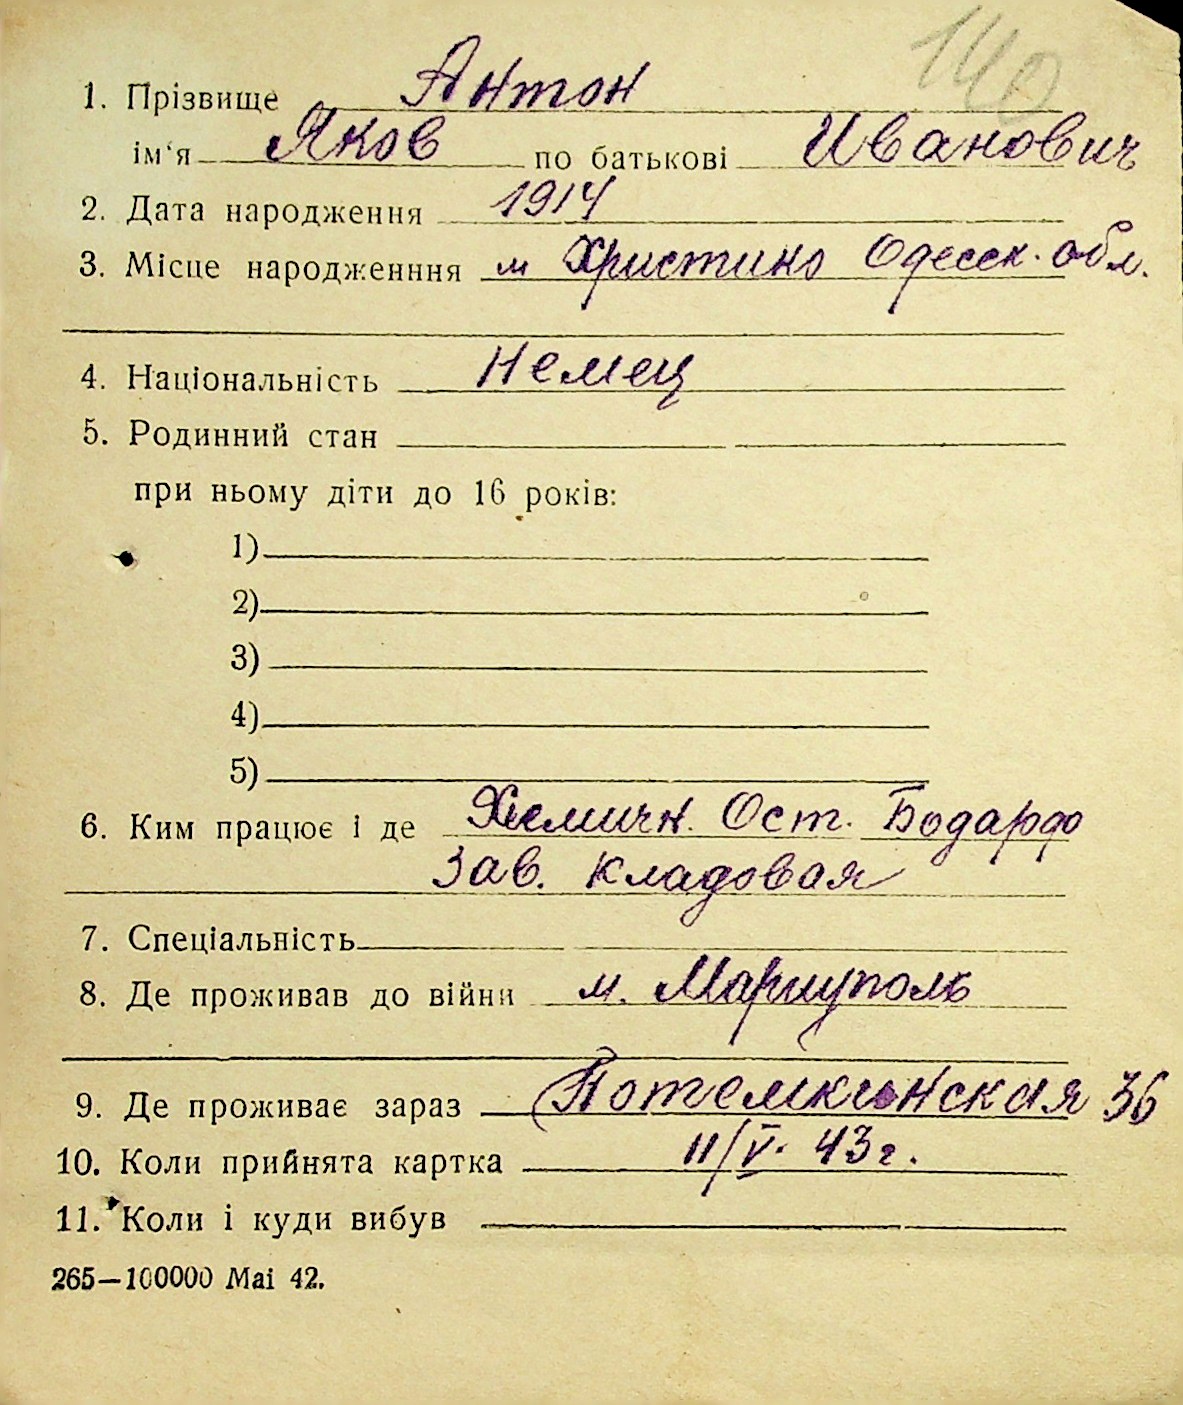 140
1. Прізвище Антон
ім'я Яков по батькові Иванович
2. Дата народження 1914
3. Місце народженння м Христино Одесск. обл.
4. Національність Немец
5. Родинний стан
при ньому діти до 16 років:
1)
2)
3)
4)
5)
6. Ким працює і де Хемичн. Ост. Бодардо
Зав. кладовая
7. Спеціальність
8. Де проживав до війни м. Мариуполь
9. Де проживає зараз Потемкинская 36
10. Коли прийнята картка 11/V. 43 г.
11. Коли і куди вибув
265—100000 Mai 42.